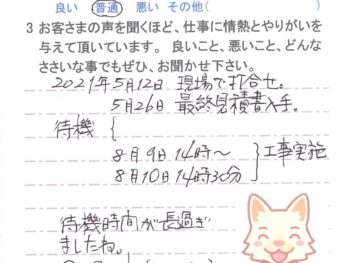 良い 普通 悪い その他(  )
3 お客さまの声を聞くほど、仕事に情熱とやりがいを
与えて頂いています。良いこと、悪いこと、どんな
ささいな事でもぜひ、お聞かせ下さい。
2021年5月12日 現場で打合せ。
5月26日 最終見積書入手。
待機 {
8月9日14時～
8月10日14時30分 } 工事実施
待機時間が長過ぎ
ましたね。